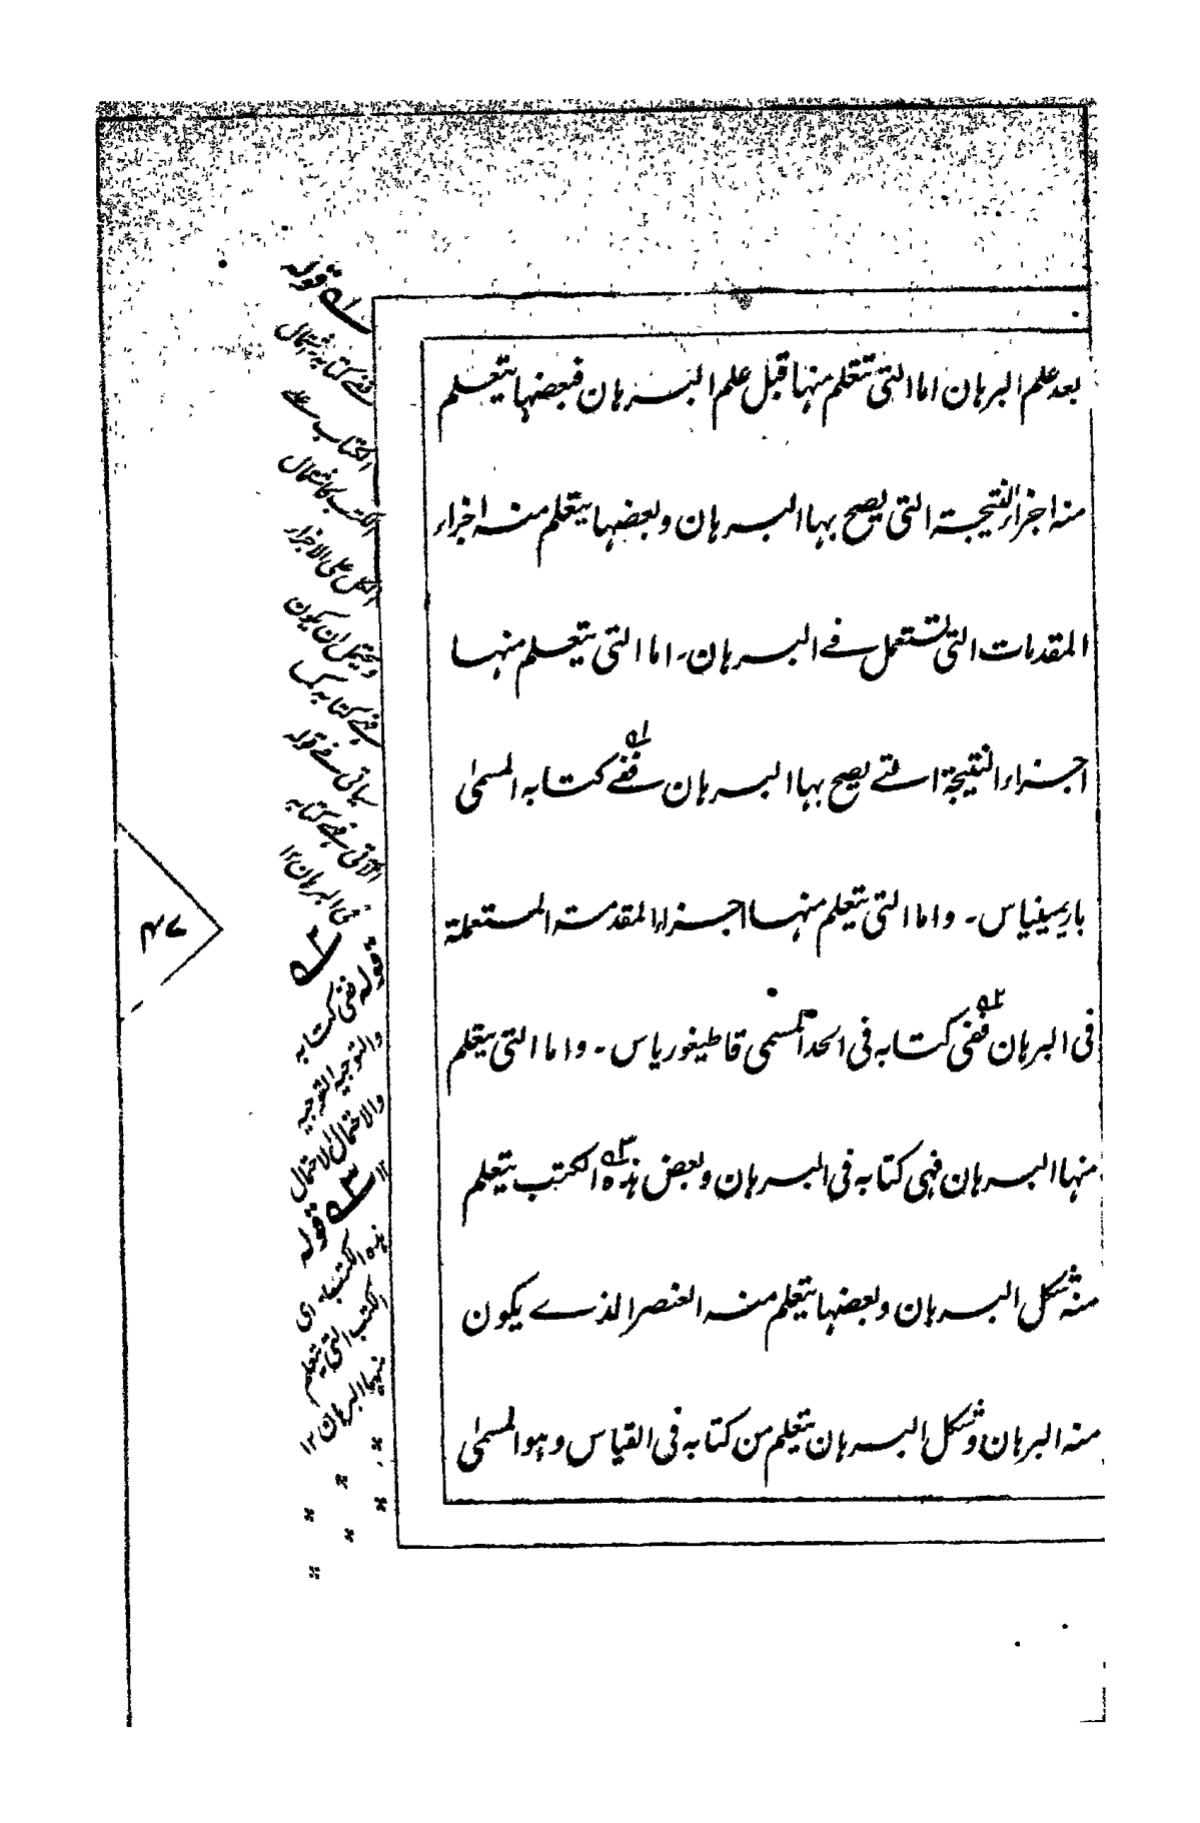 بعد علم البرهان اما التی تتعلم منها قبل علم البرهان فبعضها یتعلم
منه اجزاء النتیجة التی یصح بها البرهان وبعضها یتعلم منه اجزاء
المقدمات التی تستعمل فے البرهان۔ اما التی یتعلم منها
اجزاء النتیجة التے یصح بها البرهان ففے ۱ه کتابه المسمیٰ
باریمینیاس۔ واما التی یتعلم منها اجزاء المقدمة المستعملة
فی البرهان ففی ۲ه کتابه فی الحد المسمی قاطیغوریاس۔ واما التی یتعلم
منها البرهان فهی کتابه فی البرهان وبعض هذه ۳ه الکتب یتعلم
منه شکل البرهان وبعضها یتعلم منه العنصر الذے یکون
منه البرهان وشکل البرهان یتعلم من کتابه فی القیاس وهو المسمیٰ
۱ه قوله
ففے کتابه اشتمال
الکتاب علے
الکتب کاشتمال
الکل علی الاجزاء
ویحتمل ان یکون
ففے کتابه کما
سیاتی فے قوله
الآتی فهے کتابه
فی البرهان ۱۲
۲ه
قوله ففی کتابه
والتوجیه التوجیه
والاحتمال الاحتمال
۱۲
۳ه قوله
هذه الکتب ای
الکتب التی یتعلم
منها البرهان ۱۲
۴۷